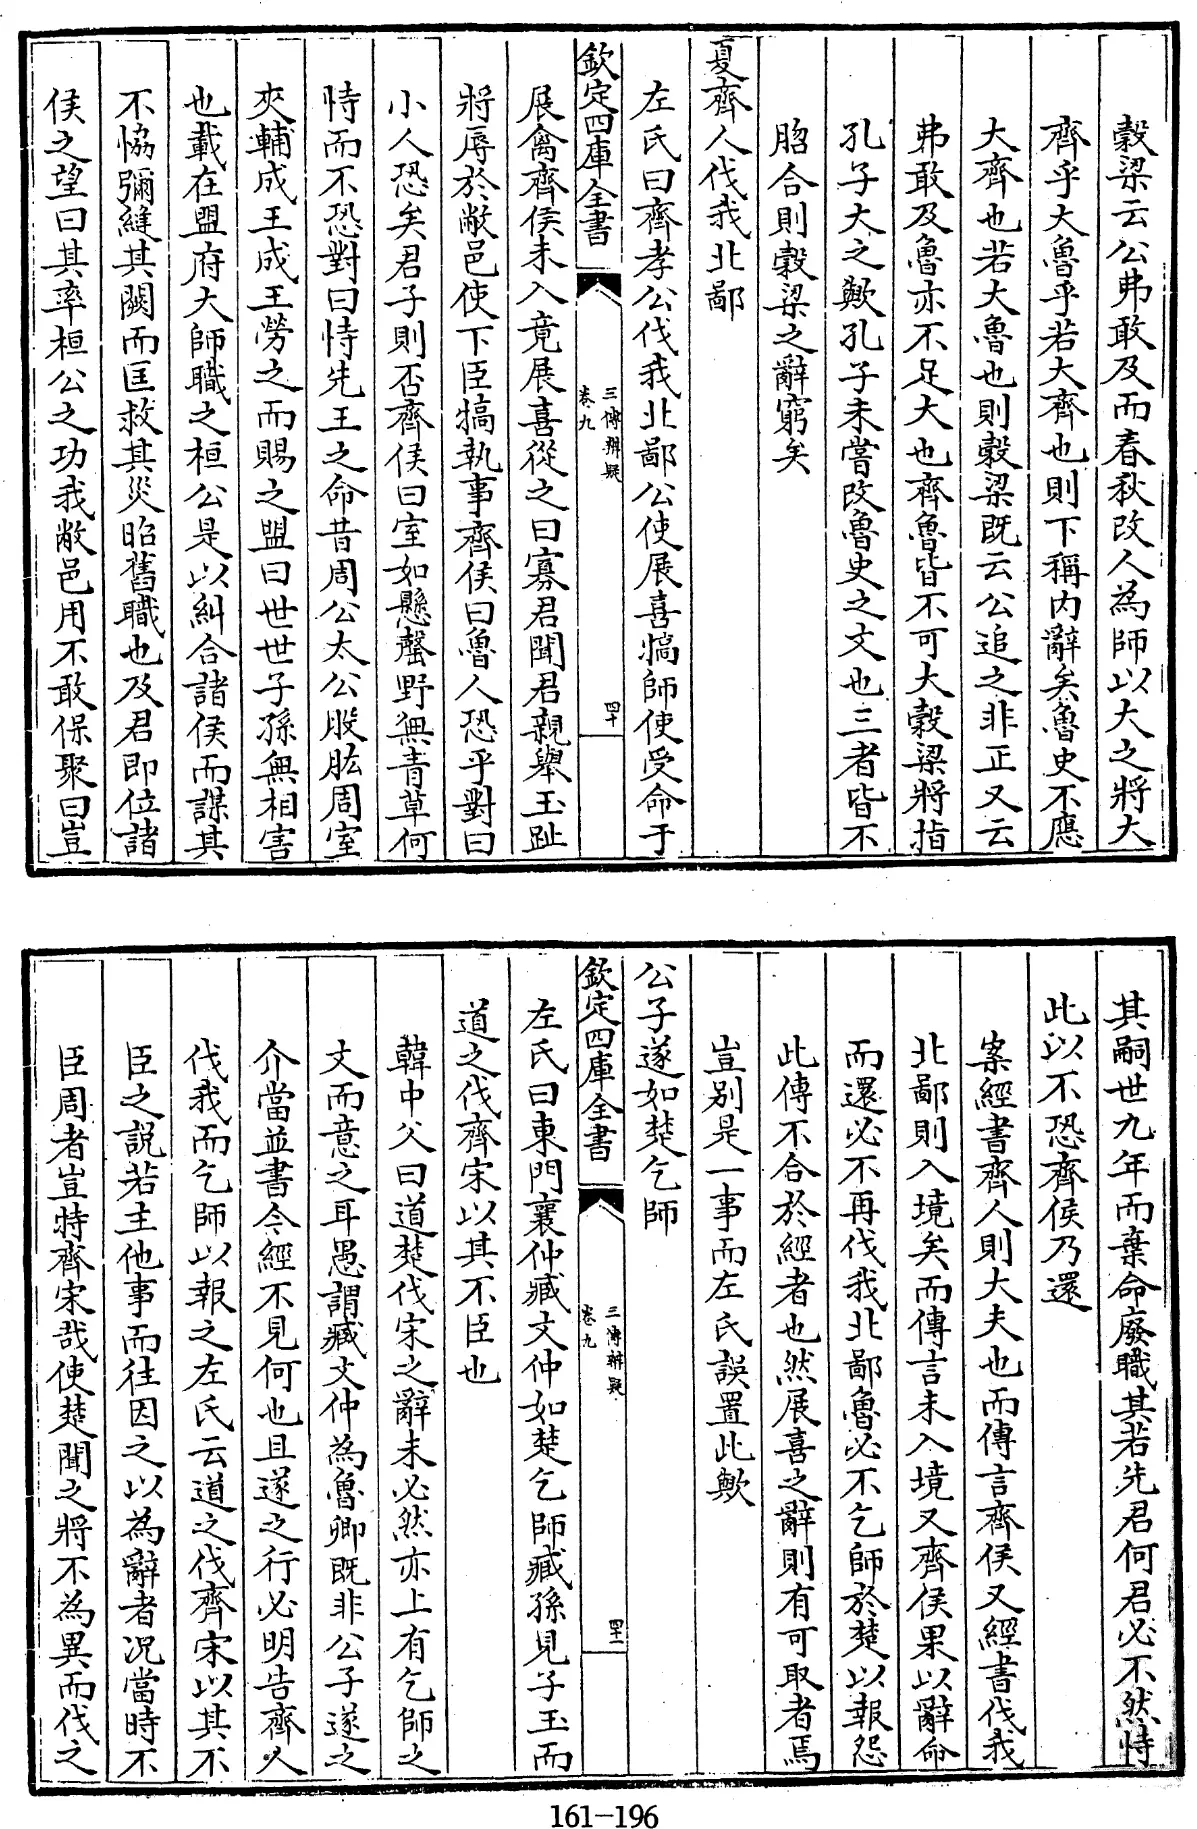 穀梁云公弗敢及而春秋改人為師以大之將大
齊乎大魯乎若大齊也則下稱内辭矣魯史不應
大齊也若大魯也則穀梁既云公追之非正又云
弗敢及魯亦不足大也齊魯皆不可大穀梁將指
孔子大之歟孔子未嘗改魯史之文也三者皆不
脗合則穀梁之辭窮矣
夏齊人伐我北鄙
左氏曰齊孝公伐我北鄙公使展喜犒師使受命于
欽定四庫全書
三傳辨疑
卷九
四十
展禽齊侯未入竟展喜從之曰寡君聞君親舉玉趾
將辱於敝邑使下臣犒執事齊侯曰魯人恐乎對曰
小人恐矣君子則否齊侯曰室如懸罄野無青草何
恃而不恐對曰恃先王之命昔周公太公股肱周室
夾輔成王成王勞之而賜之盟曰世世子孫無相害
也載在盟府大師職之桓公是以糾合諸侯而謀其
不恊彌縫其闕而匡救其災昭舊職也及君即位諸
侯之望曰其率桓公之功我敝邑用不敢保聚曰豈
其嗣世九年而棄命廢職其若先君何君必不然恃
此以不恐齊侯乃還
案經書齊人則大夫也而傳言齊侯又經書伐我
北鄙則入境矣而傳言未入境又齊侯果以辭命
而還必不再伐我北鄙魯必不乞師於楚以報怨
此傳不合於經者也然展喜之辭則有可取者焉
豈别是一事而左氏誤置此歟
公子遂如楚乞師
欽定四庫全書
三傳辨疑
卷九
四十一
左氏曰東門襄仲臧文仲如楚乞師臧孫見子玉而
道之伐齊宋以其不臣也
韓中父曰道楚伐宋之辭未必然亦上有乞師之
文而意之耳愚謂臧文仲為魯卿既非公子遂之
介當並書今經不見何也且遂之行必明告齊人
伐我而乞師以報之左氏云道之伐齊宋以其不
臣之説若主他事而往因之以為辭者况當時不
臣周者豈特齊宋哉使楚聞之將不為異而伐之
161-196